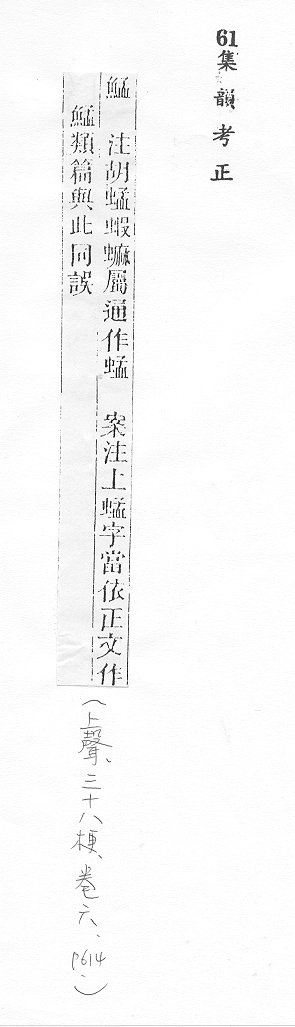 61
集韻考正
䱋 注胡蜢蝦蟆屬通作蜢 案注上蜢字當依正文作
䱋類篇與此同誤
(上聲、三十八梗、卷六、p614)